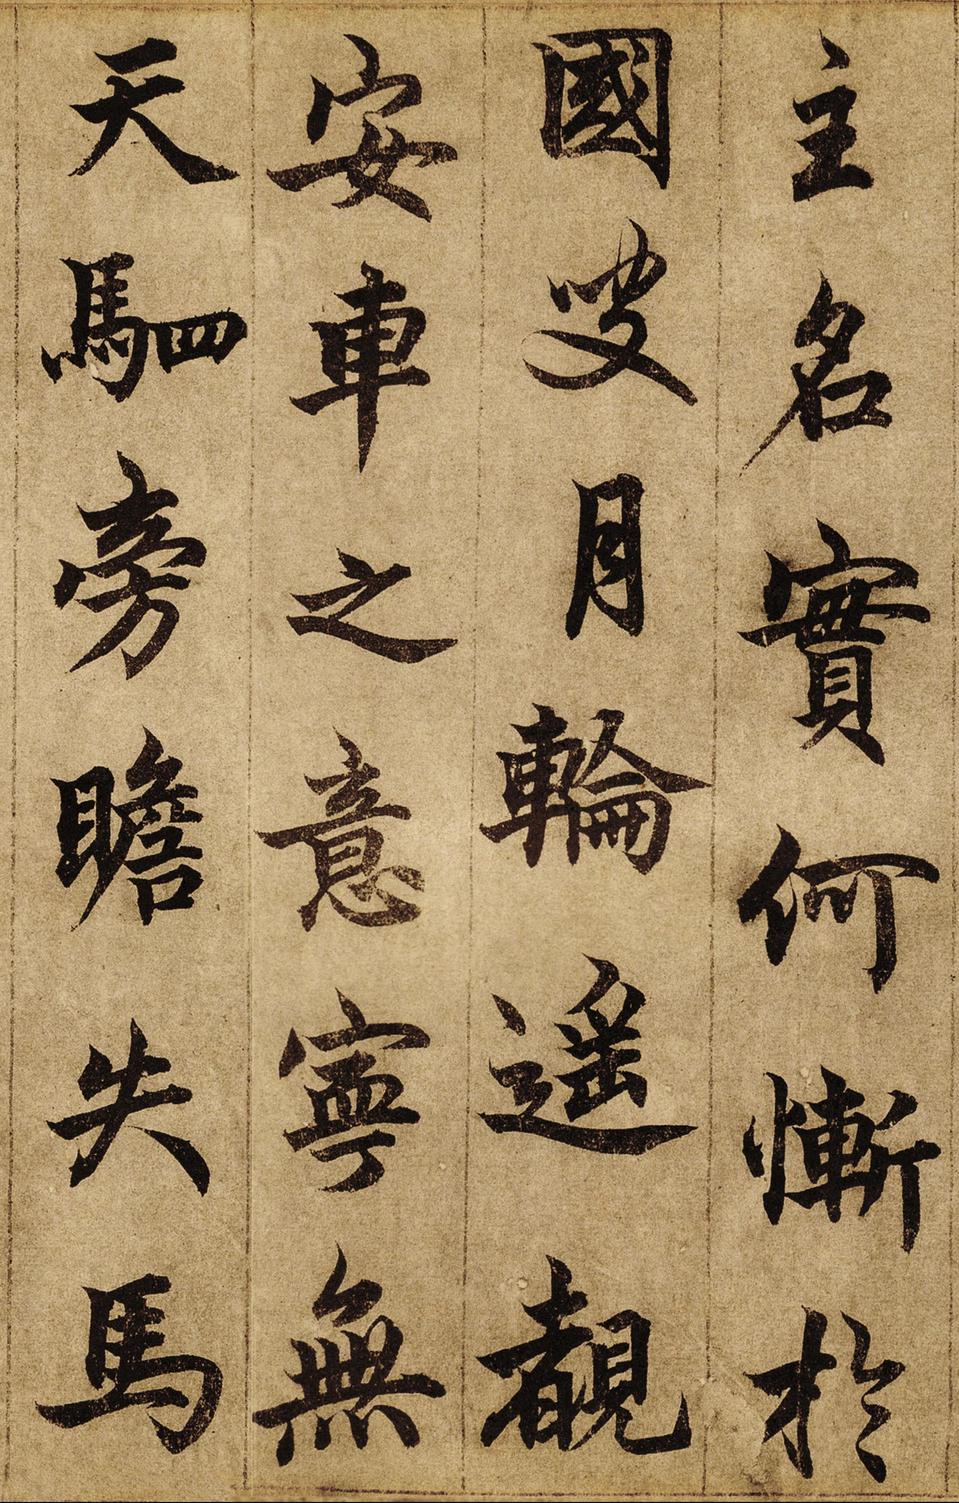 主名實何慚於
國叟月輪遥覩
安車之意寧無
天駟旁瞻失馬